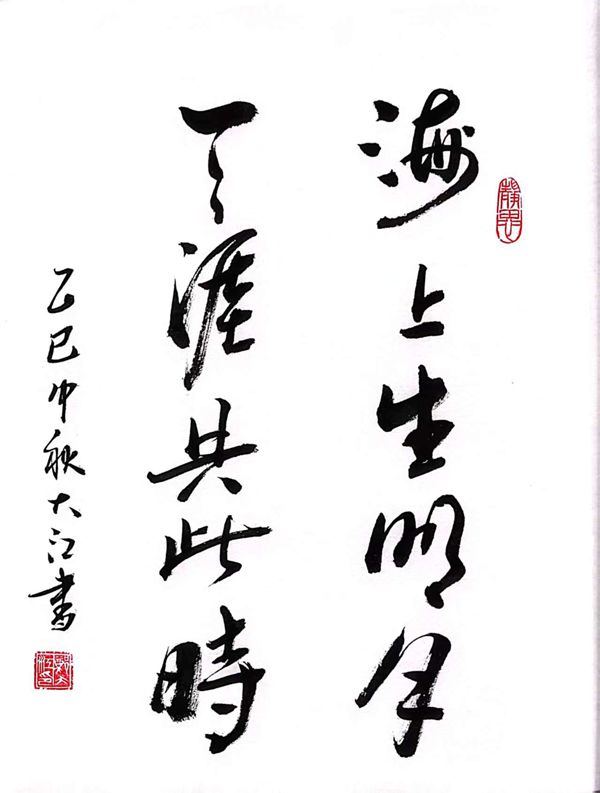 海上生明月
天涯共此時
乙巳中秋大江書
靜思